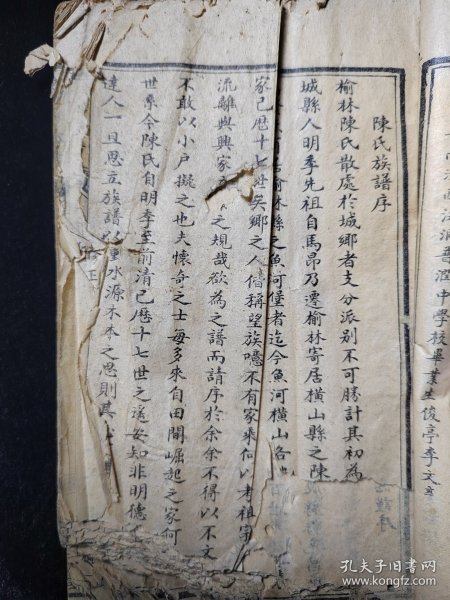 中學校畢業生俊亭李文
陳氏族譜序
榆林陳氏散處於城鄉者支分派別不可勝計其初為
城縣人明季先祖自馬昂乃遷榆林寄居橫山縣之陳
榆林縣之魚河堡者迄今魚河橫山各
家已歷十七世矣鄉之人僉稱望族噫不有家乘何以考祖宗
流離與興家 之規哉欲為之譜而請序於余余不得以不文
不敢以小戶擬之也夫懷奇之士每多來自田間崛起之家何
世系令陳氏自明季至前清已歷十七世之遙安知非明德
達人一旦思立族譜以重水源木本之思則其
孔夫子旧书网
book.kongfz.com